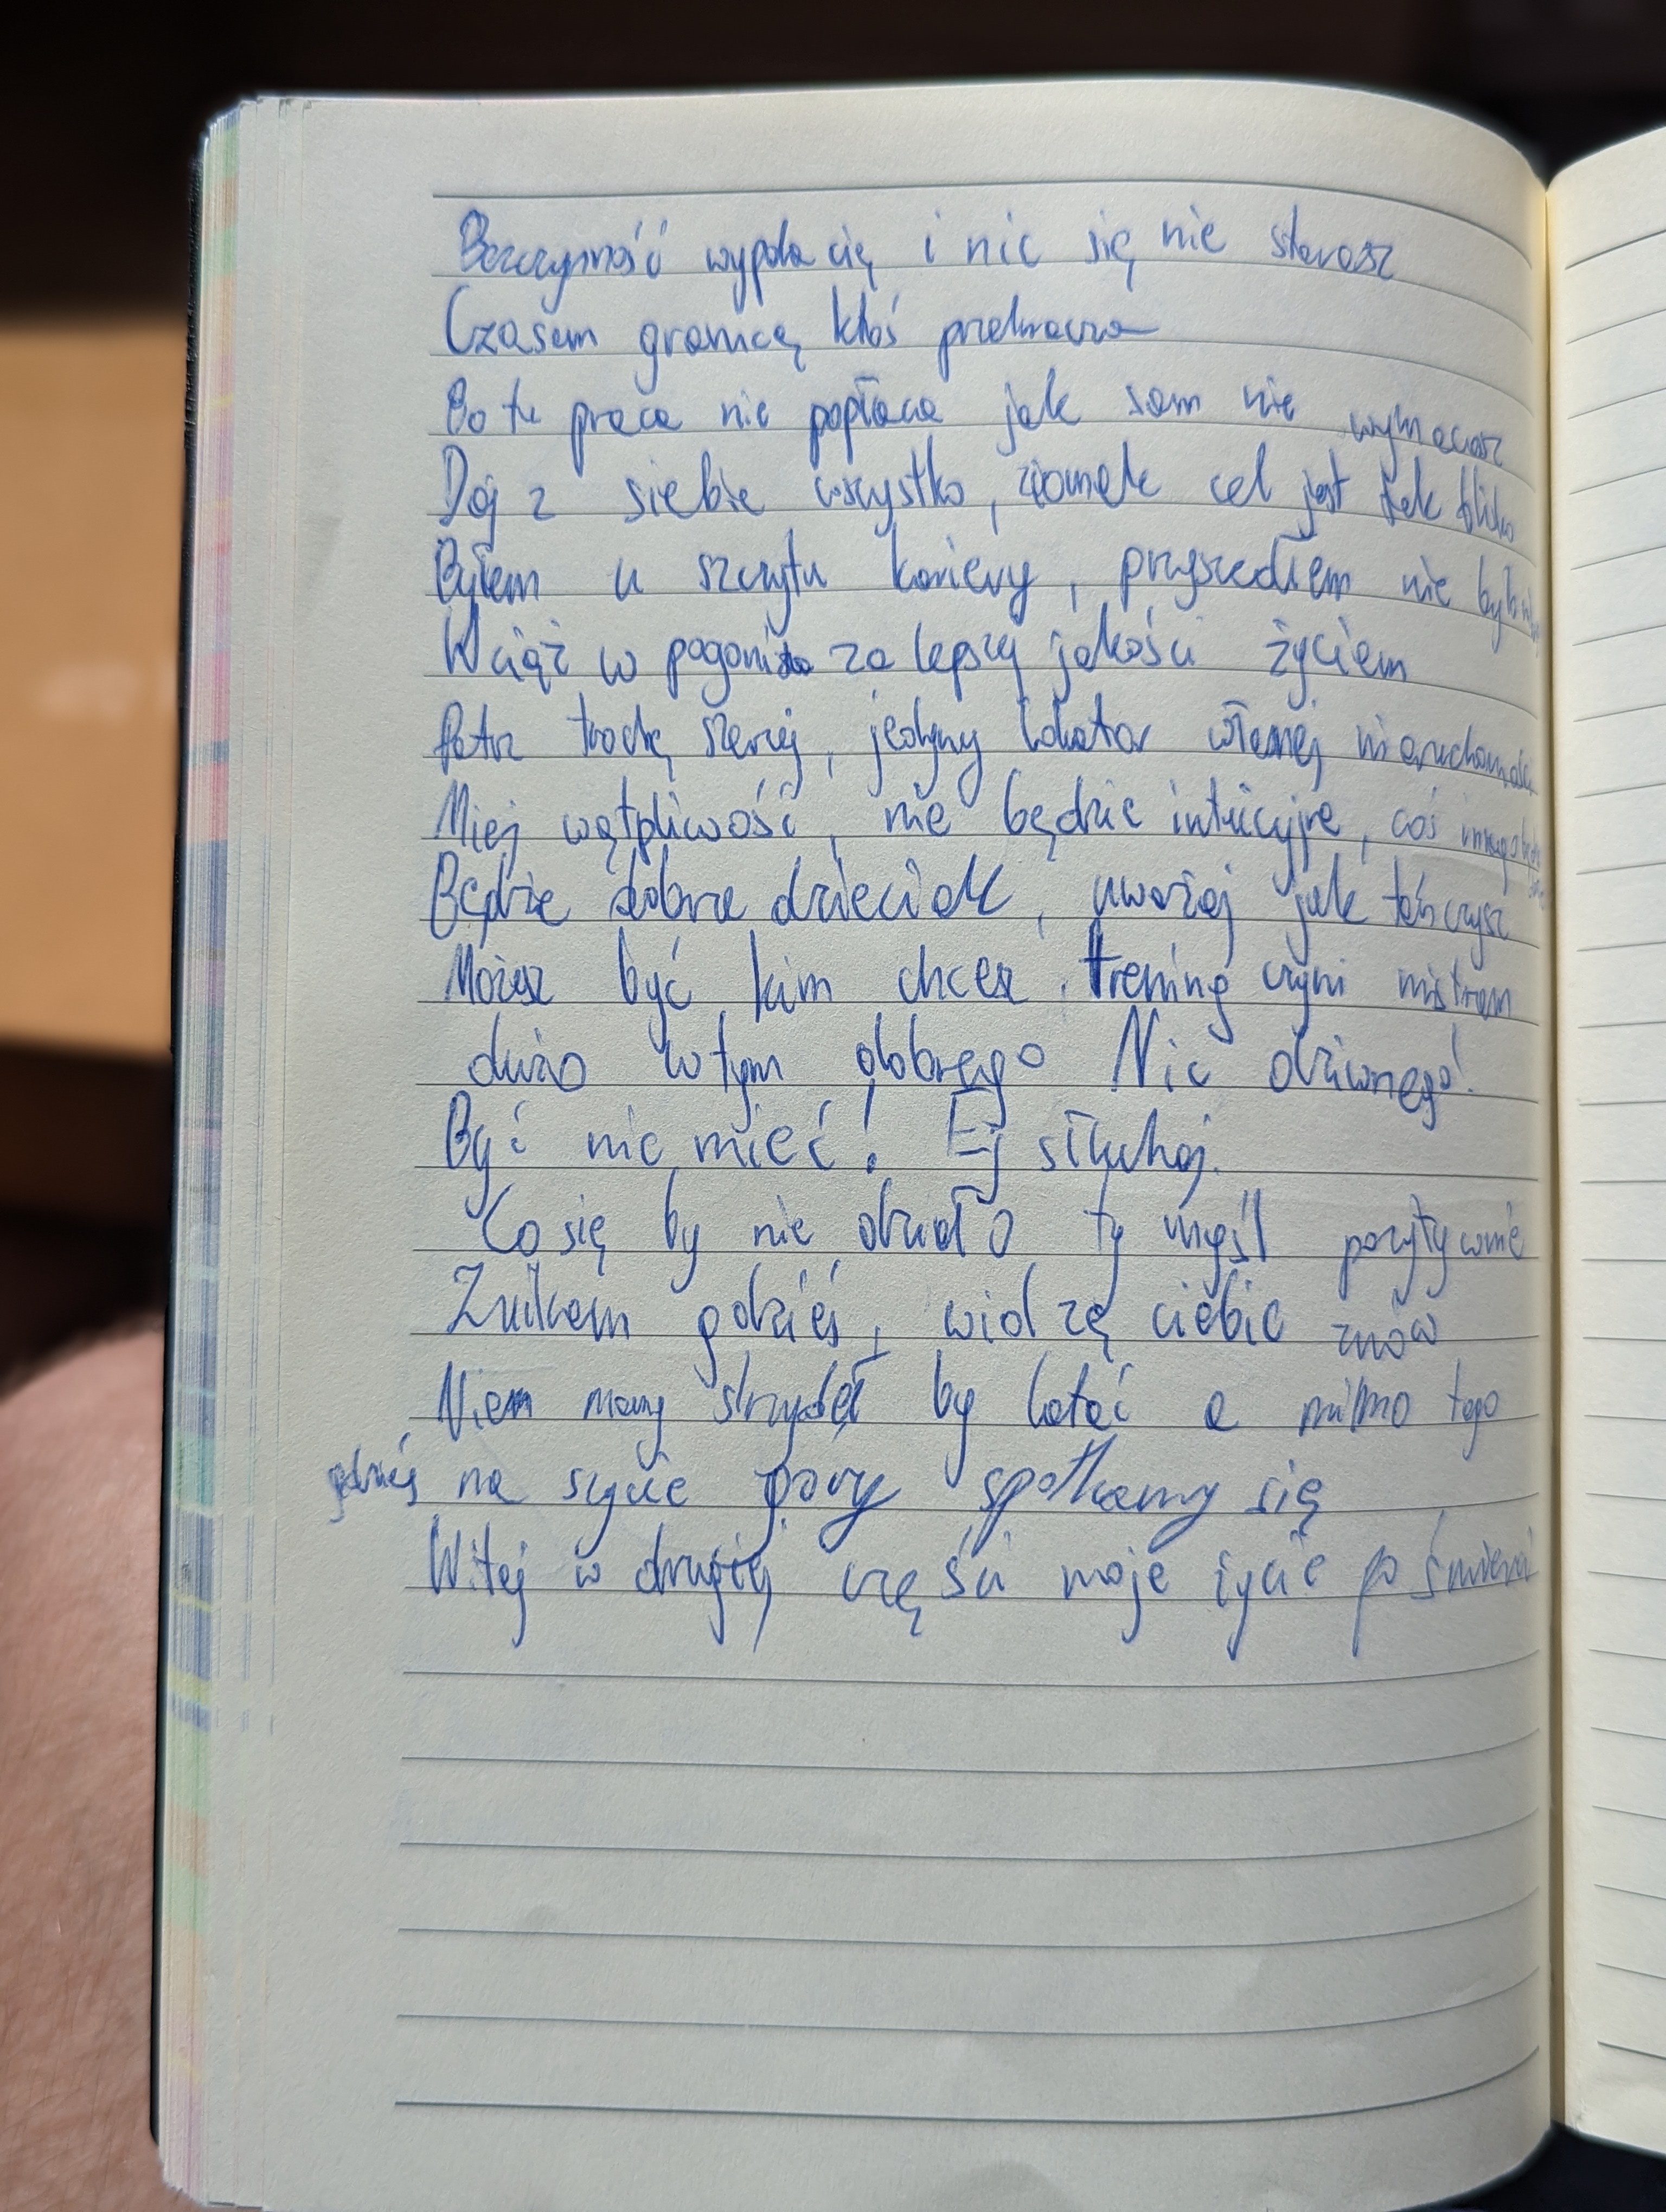 Bezczynność wypala cię i nic się nie starasz
Czasem granicę ktoś przekracza
Bo tu praca nie popłaca jak sam nie wykracasz
Daj z siebie wszystko, ziomek cel jest tak blisko
Byłem u szczytu kariery, przyszedłem nie
Wciąż w pogoni za lepszą jakości życiem
Patrz trochę szerzej, jedyny lokator własnej nieruchomości
Miej wątpliwość, nie będzie intuicyjne, coś innego
Będzie dobrze dzieciak, uważaj jak tańczysz
Możesz być kim chcesz, trening czyni mistrzem
dużo w tym dobrego Nic dziwnego!
Być nie mieć! Ej słuchaj.
Co się by nie działo ty myśl pozytywnie
Znikam gdzieś, widzę ciebie znów
Nien mamy skrzydeł by latać a mimo tego
gdzieś na szycie góry spotkamy się
Witaj w drugiej części moje życie po śmierci